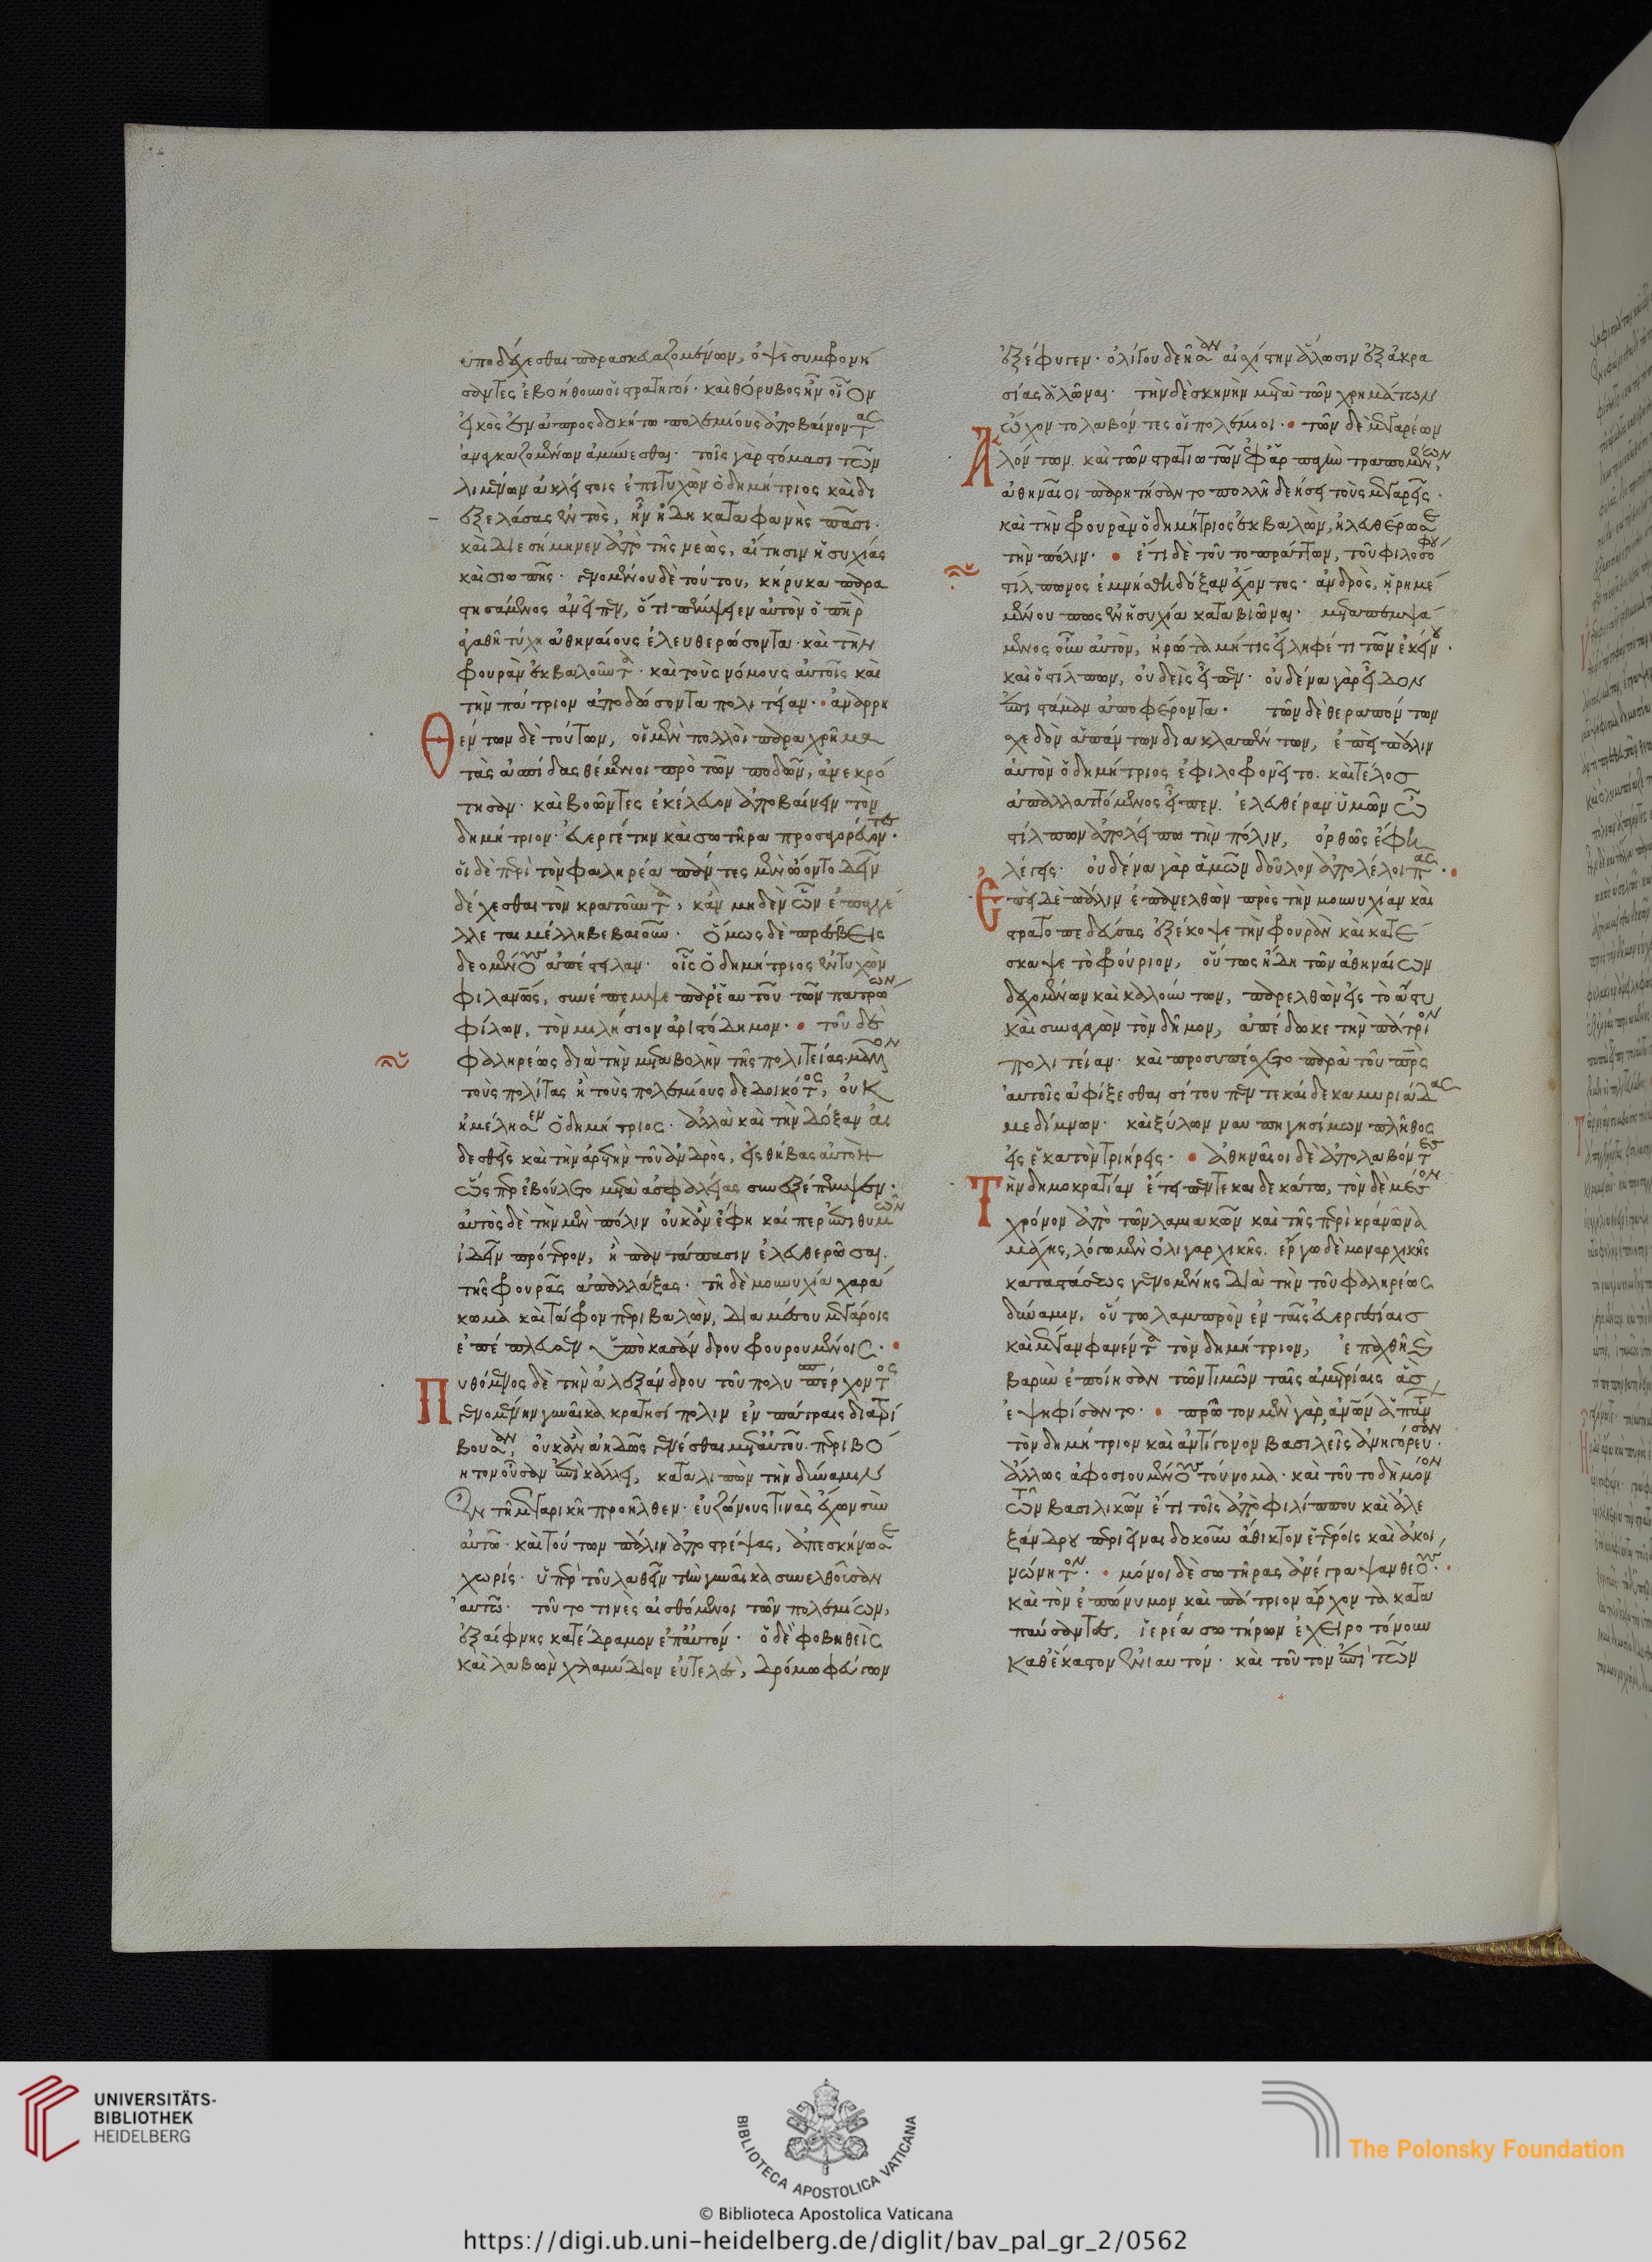 ὑποδέχεσθαι παρασκευαζομένων, ὀψὲ συμφρονή
σαντες ἐβοήθουν οἱ στρατηγοί· καὶ θόρυβος ἦν οἷον
εἰκὸς ἐν ἀπροσδοκήτω πολεμίους ἀποβαίνοντας
ἀναγκαζομένων ἀμύνεσθαι· τοῖς γὰρ στόμασι τῶν
λιμένων ἀκλείστοις ἐπιτυχὼν ὁ δημήτριος καὶ δι
εξελάσας ἐντὸς, ἦν ἤδη καταφανὴς πᾶσι·
καὶ διεσήμηνεν ἀπὸ τῆς νεὼς, αἴτησιν ἡσυχίας
καὶ σιωπῆς· γενομένου δὲ τούτου, κήρυκα παρα
στησάμενος ἀνεῖπεν, ὅτι πέμψειεν αὐτὸν ὁ πατὴρ
ἀγαθῆ τύχη ἀθηναίους ἐλευθερώσοντα· καὶ τὴν
φρουρὰν ἐκβαλοῦντα· καὶ τοὺς νόμους αὐτοῖς καὶ
τὴν πάτριον ἀποδώσοντα πολιτείαν· ἀναρρη
Θέντων δὲ τούτων, οἱ μὲν πολλοὶ παραχρῆμα
τὰς ἀσπίδας θέμενοι πρὸ τῶν ποδῶν, ἀνεκρό
τησαν· καὶ βοῶντες ἐκέλευον ἀποβαίνειν τὸν
δημήτριον· εὐεργέτην καὶ σωτῆρα προσαγορεύοντες·
οἱ δὲ περὶ τὸν φαληρέα πάντες μὲν ᾤοντο δεῖν
δέχεσθαι τὸν κρατοῦντα, κἂν μηδὲν ὧν ἐπαγγέ
λλεται μέλλη βεβαιοῦν· ὅμως δὲ πρέσβεις
δεομένους ἀπέστειλαν· οἷς ὁ δημήτριος ἐντυχὼν
φιλανθρώπως, συνέπεμψε παρ' ἑαυτοῦ τῶν πατρώων
φίλων, τὸν μιλήσιον ἀριστόδημον· τοῦ δὲ
φαληρέως διὰ τὴν μεταβολὴν τῆς πολιτείας μᾶλλον
τοὺς πολίτας ἢ τοὺς πολεμίους δεδοικότος, οὐκ
ἠμέλησεν ὁ δημήτριος· ἀλλὰ καὶ τὴν δόξαν αἰ
δεσθεὶς καὶ τὴν ἀρετὴν τοῦ ἀνδρὸς, εἰς θήβας αὐτὸν
ὥσπερ ἐβούλετο μετὰ ἀσφαλείας συνεξέπεμψεν·
αὐτὸς δὲ τὴν μὲν πόλιν οὐκ ἂν ἔφη καίπερ ἐπιθυμῶν
ἰδεῖν πρότερον, ἢ παντάπασιν ἐλευθερῶσαι
τῆς φρουρᾶς ἀπαλλάξας· τῆ δὲ μουνυχία χαρά
κωμα καὶ τάφρον περιβαλὼν, διὰ μέσου μεγάροις
ἐπέπλευσεν ὑπὸ κασάνδρου φρουρουμένοις·
Πυθόμενος δὲ τὴν ἀλεξάνδρου τοῦ πολυπέρχοντος
γενομένην γυναῖκα κρατησίπολιν ἐν πάτραις διατρί
βουσαν, οὐκ ἂν ἀηδῶς γενέσθαι μετ' αὐτοῦ· περιβό
ητον οὖσαν ἐπὶ κάλλει, καταλιπὼν τὴν δύναμιν
ἐν τῆ μεγαρικῆ προῆλθεν· εὐζώνους τινὰς ἔχων σὺν
αὐτῶ· καὶ τούτων πάλιν ἀποστρέψας, ἀπεσκήνωσε
χωρὶς· ὑπὲρ τοῦ λαθεῖν τὴν γυναῖκα συνελθοῦσαν
αὐτῶ· τοῦτό τινες αἰσθόμενοι τῶν πολεμίων,
ἐξαίφνης κατέδραμον ἐπ' αὐτόν· ὁ δὲ φοβηθεὶς
καὶ λαβὼν χλαμύδιον εὐτελὲς, δρόμω φεύγων
ἐξέφυγεν· ὀλίγου δεήσαν αἰσχίστην ἅλωσιν ἐξ ἀκρα
σίας ἁλῶναι· τὴν δὲ σκηνὴν μετὰ τῶν χρημάτων
ᾤχοντο λαβόντες οἱ πολέμιοι· τῶν δὲ μεγαρέων
Ἁλόντων καὶ τῶν στρατιωτῶν ἐφ' ἁρπαγὴν τραπομένων,
ἀθηναῖοι παρητήσαντο πολλῆ δεήσει τοὺς μεγαρεῖς·
καὶ τὴν φρουρὰν ὁ δημήτριος ἐκβαλὼν, ἠλευθέρωσε
τὴν πόλιν· ἔτι δὲ τοῦτο πράττων, τοῦ φιλοσόφου
στίλπωνος ἐμνήσθη δόξαν ἔχοντος· ἀνδρὸς, ἡρημέ
νου πως ἐν ἡσυχία καταβιῶναι· μεταπεμψά
μενος οὖν αὐτὸν, ἠρώτα μή τις εἴληφέ τι τῶν ἐκείνου·
καὶ ὁ στίλπων, οὐδεὶς εἶπεν· οὐδένα γὰρ εἶδον
ἐπιστάμαν ἀποφέροντα· τῶν δὲ θεραπόντων
σχεδὸν ἁπάντων διακλαπέντων, ἐπεὶ πάλιν
αὐτὸν ὁ δημήτριος ἐφιλοφρονεῖτο· καὶ τέλος
ἀπαλλαττόμενος εἶπεν· ἐλευθέραν ὑμῶν ὦ
στίλπων ἀπολείπω τὴν πόλιν, ὀρθῶς ἔφη
λέγεις· οὐδένα γὰρ ἁμῶν δοῦλον ἀπολέλοιπας·
Ἐπεὶ δὲ πάλιν ἐπανελθὼν πρὸς τὴν μουνυχίαν καὶ
στρατοπεδεύσας ἐξέκοψε τὴν φρουρὰν καὶ κατέ
σκαψε τὸ φρούριον, οὕτως ἤδη τῶν ἀθηναίων
δεχομένων καὶ καλούντων, παρελθὼν εἰς τὸ ἄστυ
καὶ συναγαγὼν τὸν δῆμον, ἀπέδωκε τὴν πάτριον
πολιτείαν· καὶ προσυπέσχετο παρὰ τοῦ πατρὸς
αὐτοῖς ἀφίξεσθαι σίτου πεντεκαίδεκα μυριάδας
μεδίμνων· καὶ ξύλων ναυπηγησίμων πλῆθος
εἰς ἑκατὸν τριήρεις· ἀθηναῖοι δὲ ἀπολαβόντες
Τὴν δημοκρατίαν ἔτει πεντεκαιδεκάτω, τὸν δὲ μέσον
χρόνον ἀπὸ τῶν λαμιακῶν καὶ τῆς περὶ κρανῶνα
μάχης, λόγω μὲν ὀλιγαρχικῆς, ἔργω δὲ μοναρχικῆς
καταστάσεως γενομένης διὰ τὴν τοῦ φαληρέως
δύναμιν, οὕτω λαμπρὸν ἐν ταῖς εὐεργεσίαις
καὶ μέγαν φανέντα τὸν δημήτριον, ἐπαχθῆ καὶ
βαρὺν ἐποίησαν τῶν τιμῶν ταῖς ἀμετρίαις ἃς
ἐψηφίσαντο· πρῶτον μὲν γὰρ, ἀνθρώπων ἁπάντων
τὸν δημήτριον καὶ ἀντίγονον βασιλεῖς ἀνηγόρευσαν·
ἄλλως ἀφοσιουμένους τοὔνομα· καὶ τοῦτο δὴ μόνον
τῶν βασιλικῶν ἔτι τοῖς ἀπὸ φιλίππου καὶ ἀλε
ξάνδρου περιεῖναι δοκοῦν ἄθικτον ἑτέροις καὶ ἀκοι
νώνητον· μόνοι δὲ σωτῆρας ἀνέγραψαν θεούς·
καὶ τὸν ἐπώνυμον καὶ πάτριον ἄρχοντα κατα
παύσαντες, ἱερέα σωτήρων ἐχειροτόνουν
καθ' ἕκαστον ἐνιαυτόν· καὶ τοῦτον ἐπὶ τῶν
UNIVERSITÄTS-
BIBLIOTHEK
HEIDELBERG
BIBLIOTECA APOSTOLICA VATICANA
The Polonsky Foundation
© Biblioteca Apostolica Vaticana
https://digi.ub.uni-heidelberg.de/diglit/bav_pal_gr_2/0562